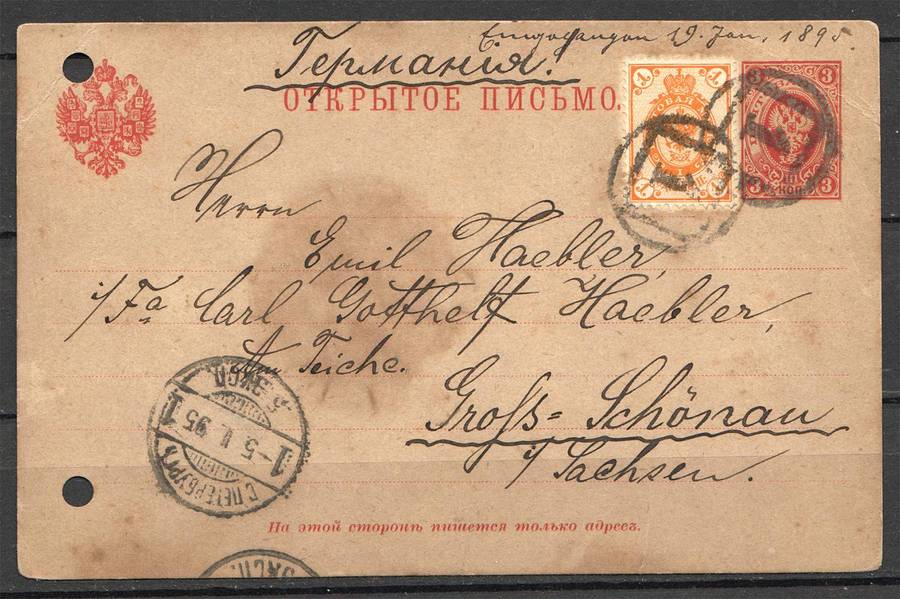 19. Jan. 1895.
Германія!
ОТКРЫТОЕ ПИСЬМО.
3 3
1 1
1 1
3 КОП. 3
Herrn
Emil Haebler,
i/Fa Carl Gotthelf Haebler,
Am Teiche.
Gross=Schönau
i/Sachsen.
5 ЭКСП.
1 -5 II 95 1
С.ПЕТЕРБУРГЪ
На этой сторонѣ пишется только адресъ.
ЭКСП.